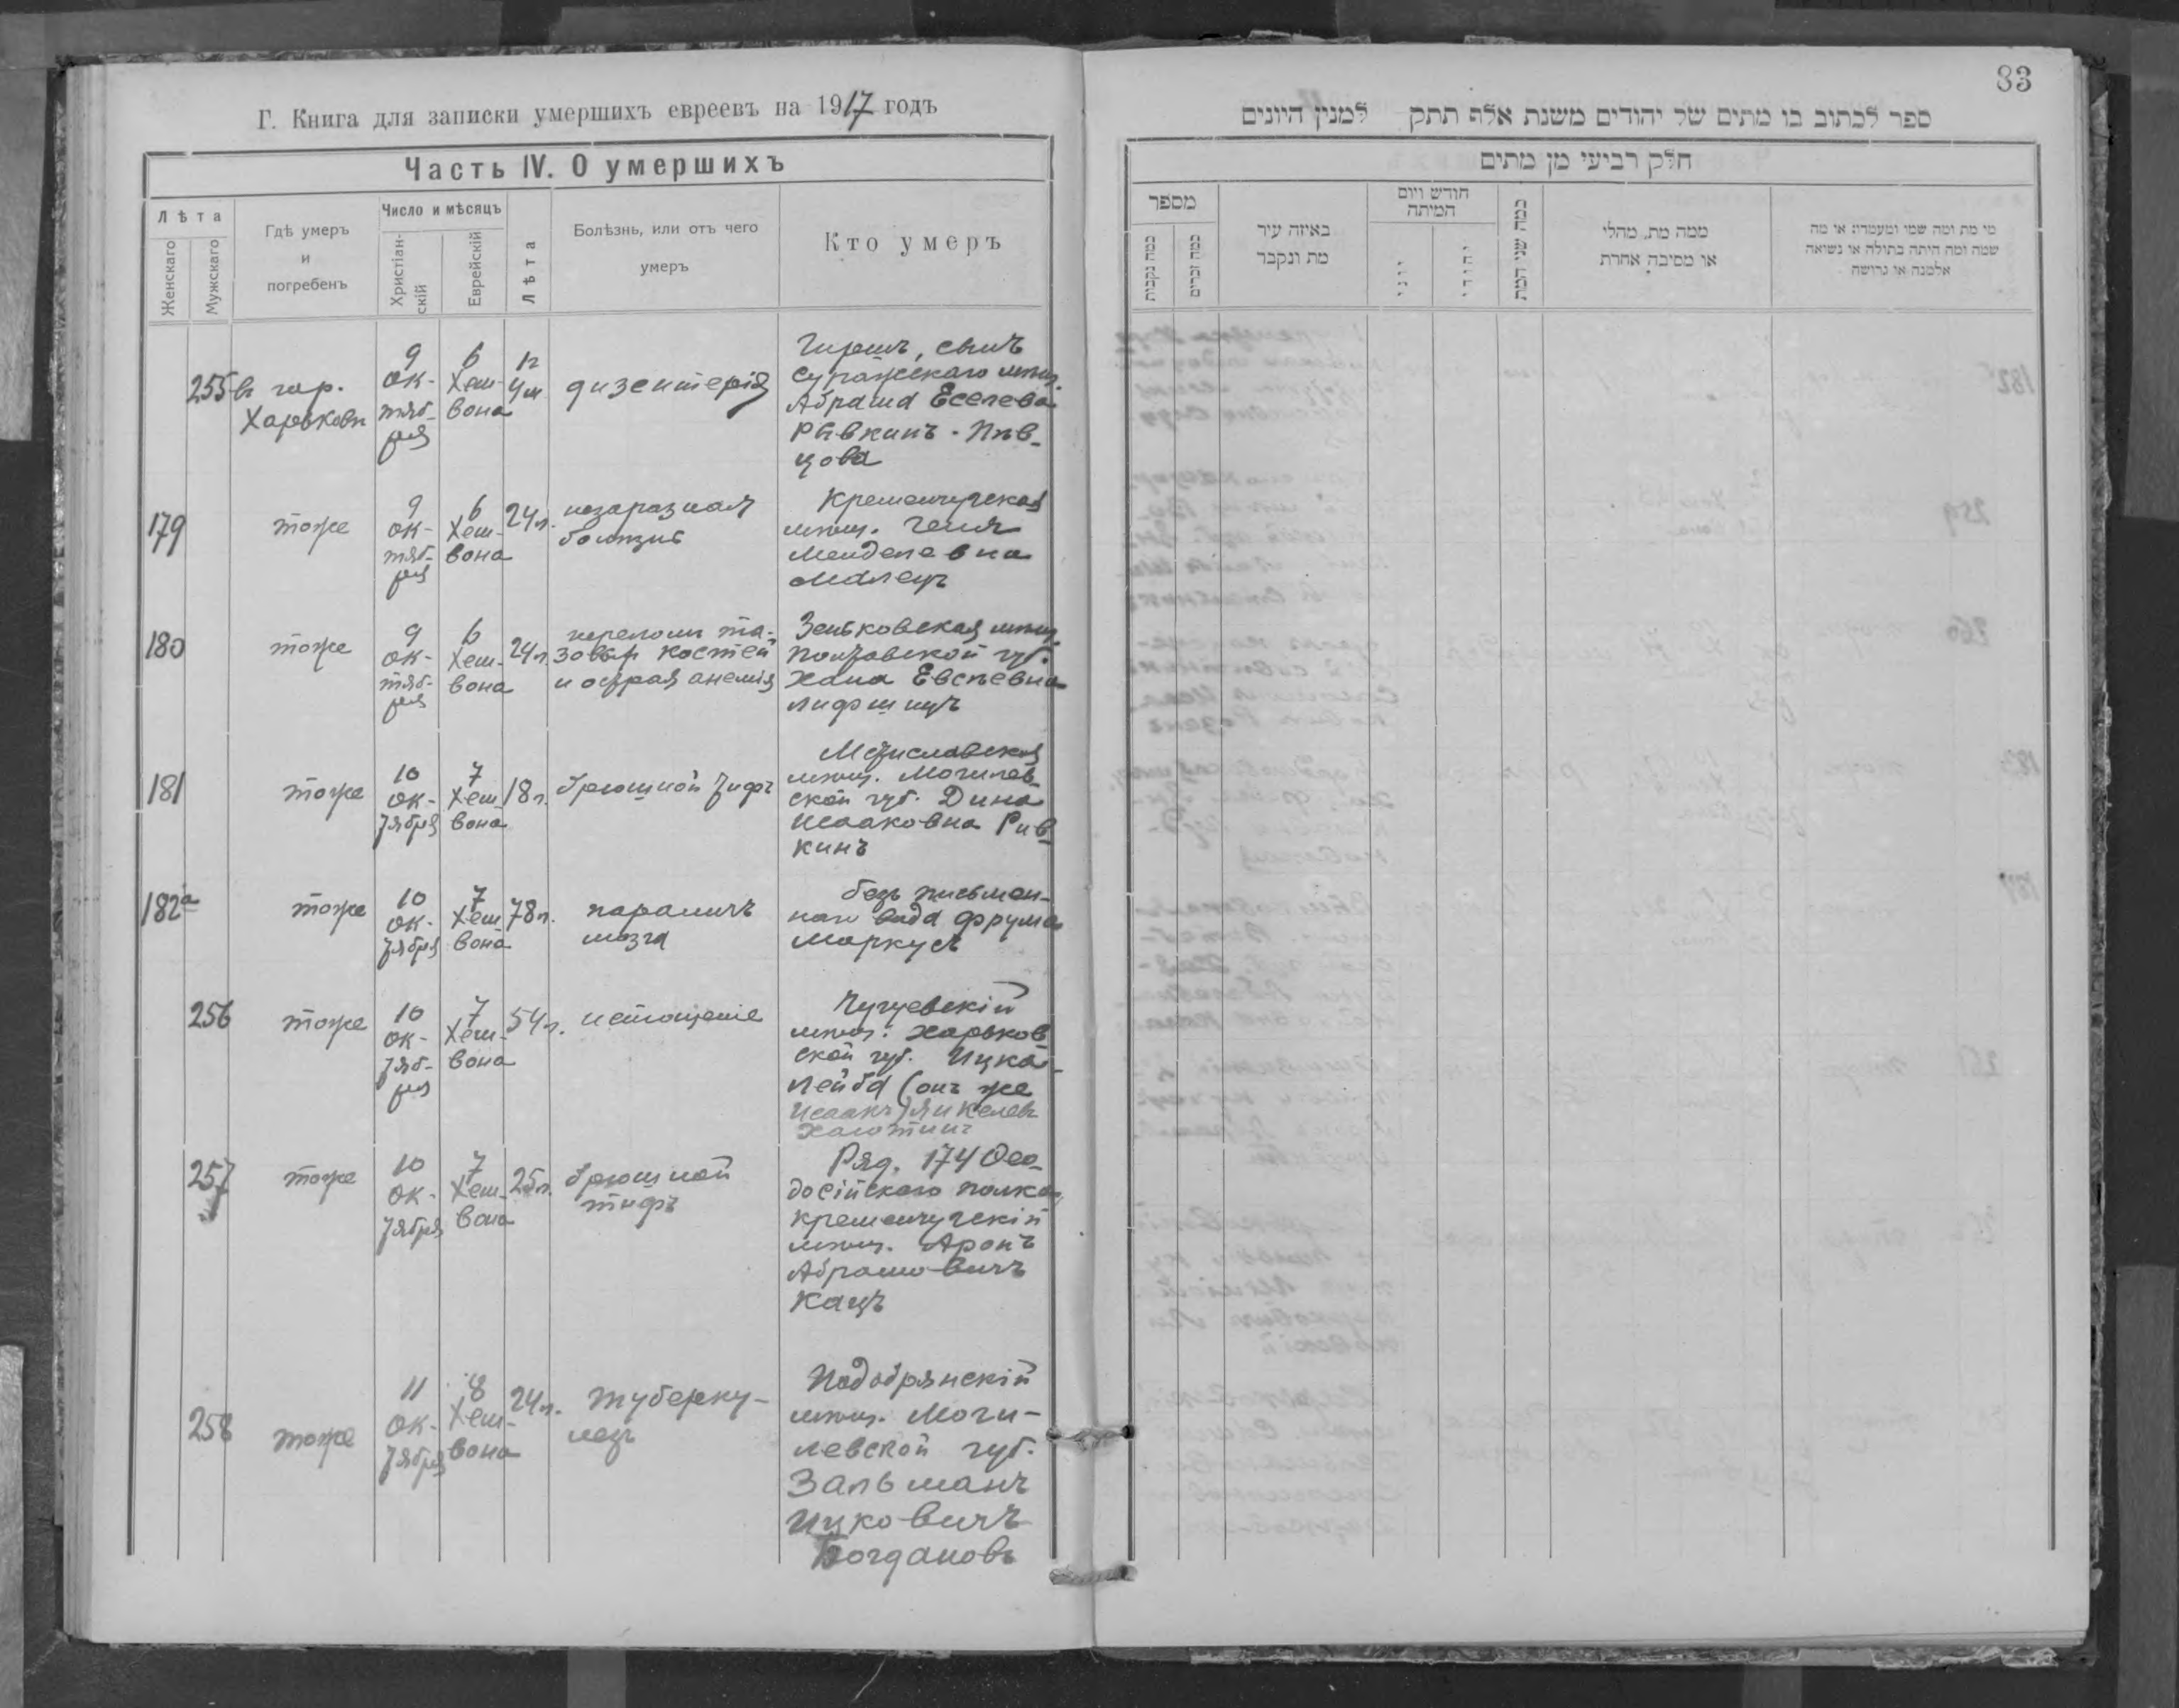 Г. Книга для записки умершихъ евреевъ на 1917 годъ
Часть IV. О умершихъ
Лѣта
Женскаго
Мужскаго
Гдѣ умеръ
и
погребенъ
Число и мѣсяцъ
Христіан-
скій
Еврейскій
Лѣта
Болѣзнь, или отъ чего
умеръ
Кто умеръ
255
въ гор.
Харьковѣ
9
ок-
тяб-
ря
6
Хеш-
вона
1 г.
4 м.
дизентерія
Гиршъ, сынъ
Суражскаго мѣщ.
Абрама Еселева
Рывкинъ-Пѣв-
цова
179
тоже
9
ок-
тяб-
ря
6
Хеш-
вона
24 л.
незаразная
болѣзнь
Кременчугская
мѣщ. Геня
Менделевна
Малецъ
180
тоже
9
ок-
тяб-
ря
6
Хеш-
вона
24 л.
переломъ та-
зовыхъ костей
и острая анемія
Зеньковская мѣщ.
Полтавской губ.
Хана Евсѣевна
Лифшицъ
181
тоже
10
ок-
тября
7
Хеш-
вона
18 л.
брюшной тифъ
Мстиславская
мѣщ. Могилев-
ской губ. Дина
Исааковна Рив-
кинъ
182а
тоже
10
ок-
тября
7
Хеш-
вона
78 л.
параличъ
мозга
безъ письмен-
наго вида Фрума
Маркусъ
256
тоже
10
ок-
тяб-
ря
7
Хеш-
вона
54 л.
истощеніе
Чугуевскій
мѣщ. Харьков-
ской губ. Ицка-
Лейба (онъ же
Исаакъ) Янкелевъ
257
тоже
10
ок-
тября
7
Хеш-
вона
25 л.
брюшной
тифъ
Ряд. 174 Ѳео-
досійскаго полка,
Кременчугскій
мѣщ. Аронъ
Абрамовичъ
Кацъ
258
тоже
11
ок-
тября
8
Хеш-
вона
24 л.
туберку-
лезъ
Пододобрянскій
мѣщ. Моги-
левской губ.
Зальманъ
Ицковичъ
Богдановъ
83
ספר לכתוב בו מתים של יהודים משנת אלף תתק למנין היונים
חלק רביעי מן מתים
מספר
כמה נקבות
כמה זכרים
באיזה עיר
מת ונקבר
חודש ויום
המיתה
יוני
יהודי
כמה שני המת
ממה מת, מחלי
או מסיבה אחרת
מי מת ומה שמו ומעמדו או מה
שמה ומה היתה בתולה או נשואה
אלמנה או גרושה